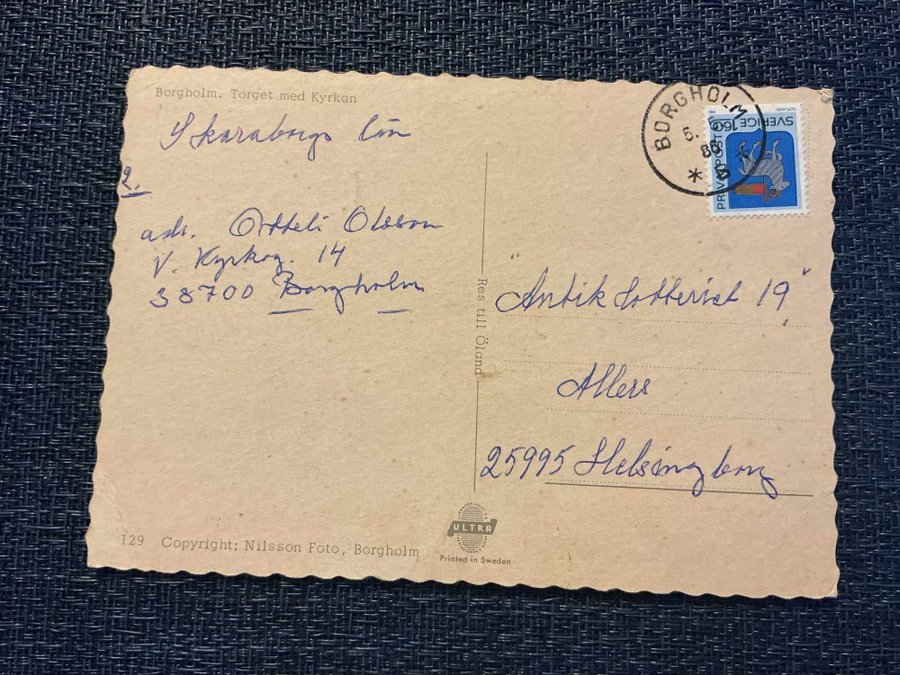 Borgholm. Torget med Kyrkan
Skaraborgs län
2.
adr. Otteli Olsson
V. Kyrkog. 14
38700 Borgholm
129 Copyright: Nilsson Foto, Borgholm
Res till Öland
ULTRA
Printed in Sweden
BORGHOLM
6.
86
PRIVATPOST
SVERIGE 160
GOTLAND
"Antik Lotteriet 19"
Allers
25995 Helsingborg